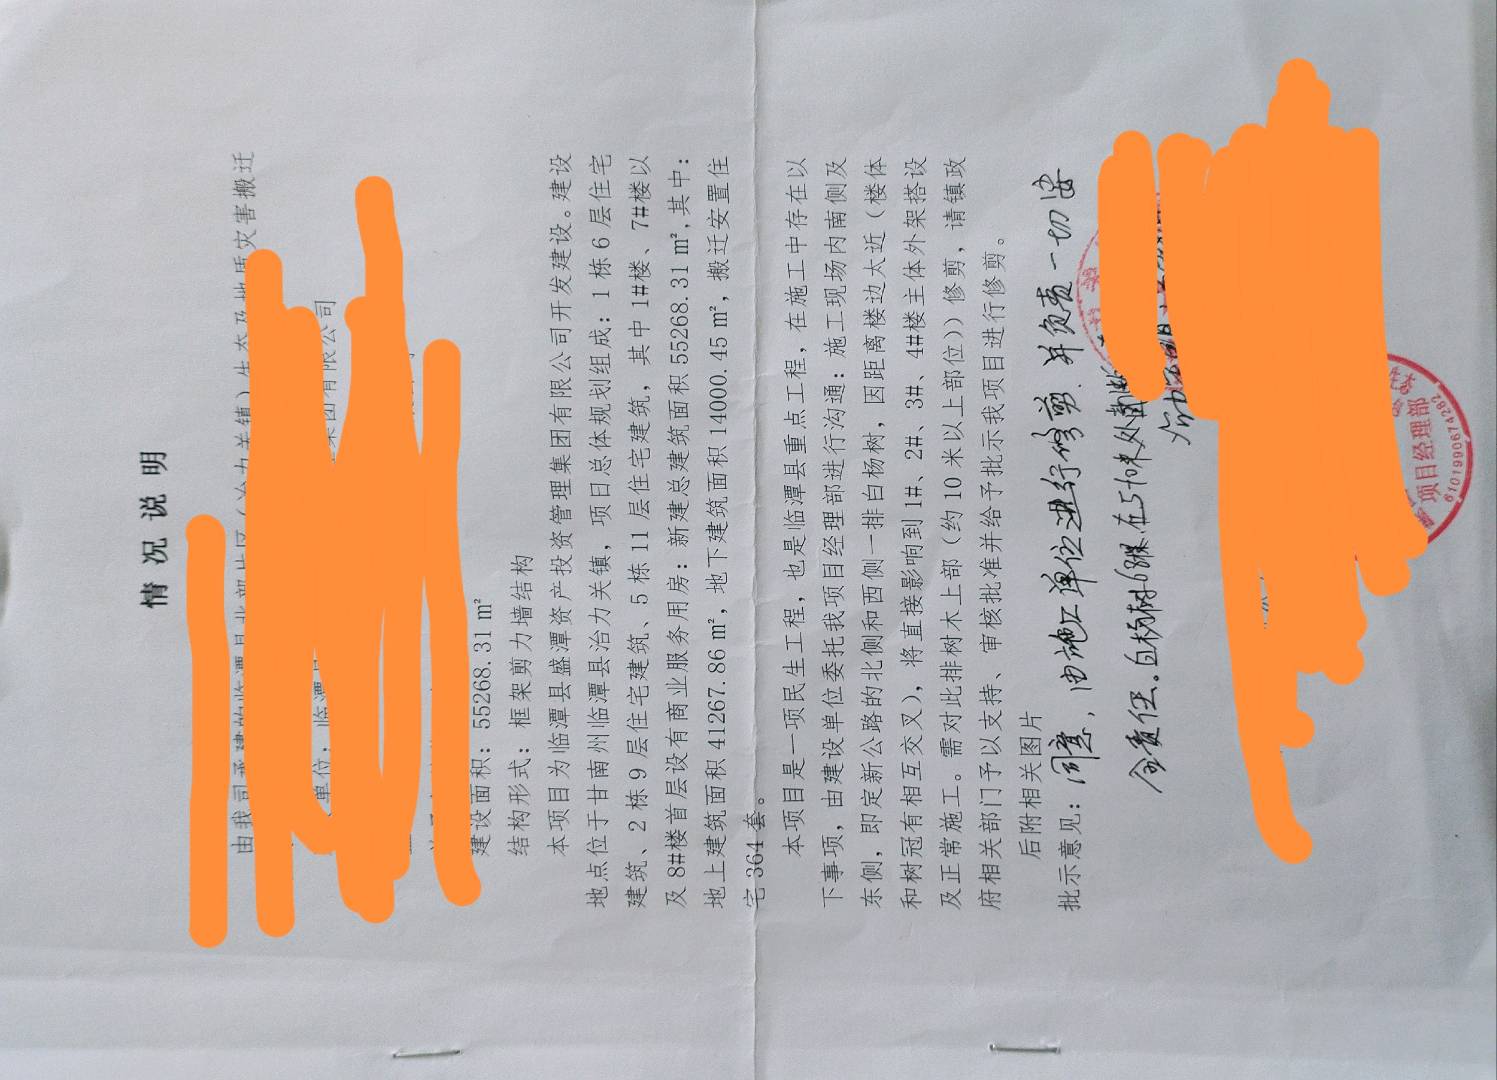 情况说明
由我司承建的临潭县北部片区（冶力关镇）生态及地质灾害搬迁
单位：临潭
集团有限公司
建设面积：55268.31 ㎡
结构形式：框架剪力墙结构
本项目为临潭县盛潭资产投资管理集团有限公司开发建设。建设
地点位于甘南州临潭县冶力关镇，项目总体规划组成：1 栋 6 层住宅
建筑、2 栋 9 层住宅建筑、5 栋 11 层住宅建筑，其中 1#楼、7#楼以
及 8#楼首层设有商业服务用房：新建总建筑面积 55268.31 ㎡,其中：
地上建筑面积 41267.86 ㎡，地下建筑面积 14000.45 ㎡，搬迁安置住
宅 364 套。
本项目是一项民生工程，也是临潭县重点工程，在施工中存在以
下事项，由建设单位委托我项目经理部进行沟通：施工现场内南侧及
东侧，即定新公路的北侧和西侧一排白杨树，因距离楼边太近（楼体
和树冠有相互交叉），将直接影响到 1#、2#、3#、4#楼主体外架搭设
及正常施工。需对此排树木上部（约 10 米以上部位））修剪，请镇政
府相关部门予以支持、审核批准并给予批示我项目进行修剪。
后附相关图片
批示意见：同意，由施工单位进行修剪.并负责一切安
全责任。白杨树68棵.在5-10米处
项目经理部
6101990674282